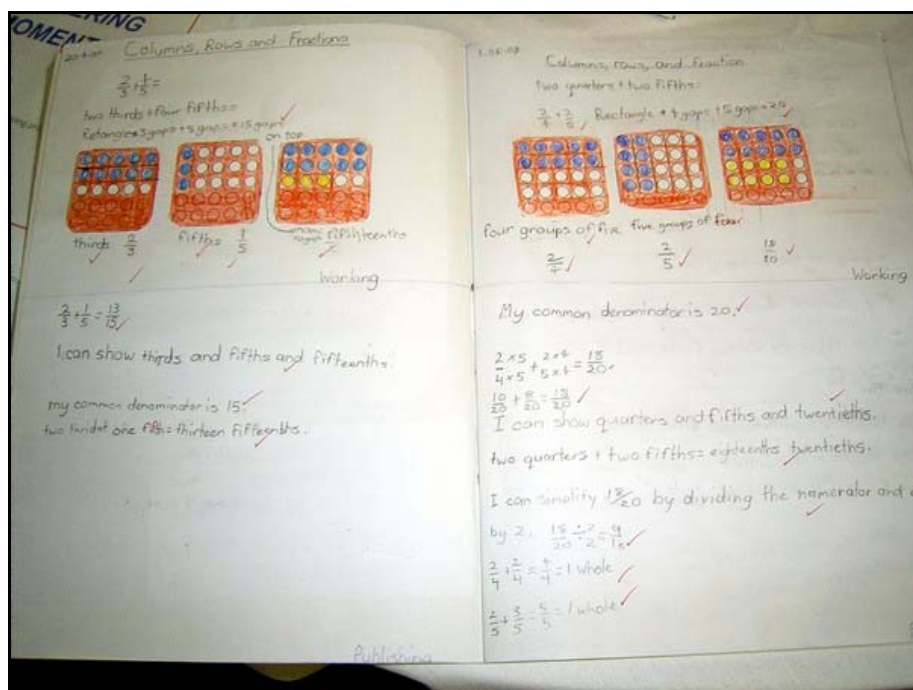 ERING
MOMEN
Columns, Rows and Fractions
2/3 + 1/5 =
two thirds + four fifths =
Retangle + 3 gaps + 5 gaps = 15 gaps
on top
thirds 2/3
fifths 1/5
fifhteenths
Working
2/3 + 1/5 = 13/15
I can show thirds and fifths and fifteenths.
my common denominator is 15.
two thirds + one fifth = thirteen fifteenths.
Publishing
Columns, rows, and fraction
two quarters + two fifths =
2/4 + 2/5 Rectangle + 4 gaps + 5 gaps = 20
four groups of five five groups of four
2/4
2/5
18/20
Working
My common denominator is 20.
2×5/4×5 + 2×4/5×4 = 18/20.
10/20 + 8/20 = 18/20
I can show quarters and fifths and twentieths.
two quarters + two fifths = eighteenths twentieths.
I can simplify 18/20 by dividing the namerator and
by 2. 18/20 ÷2/÷2 = 9/10
2/4 + 2/4 = 4/4 = 1 whole
2/5 + 3/5 = 5/5 = 1 whole